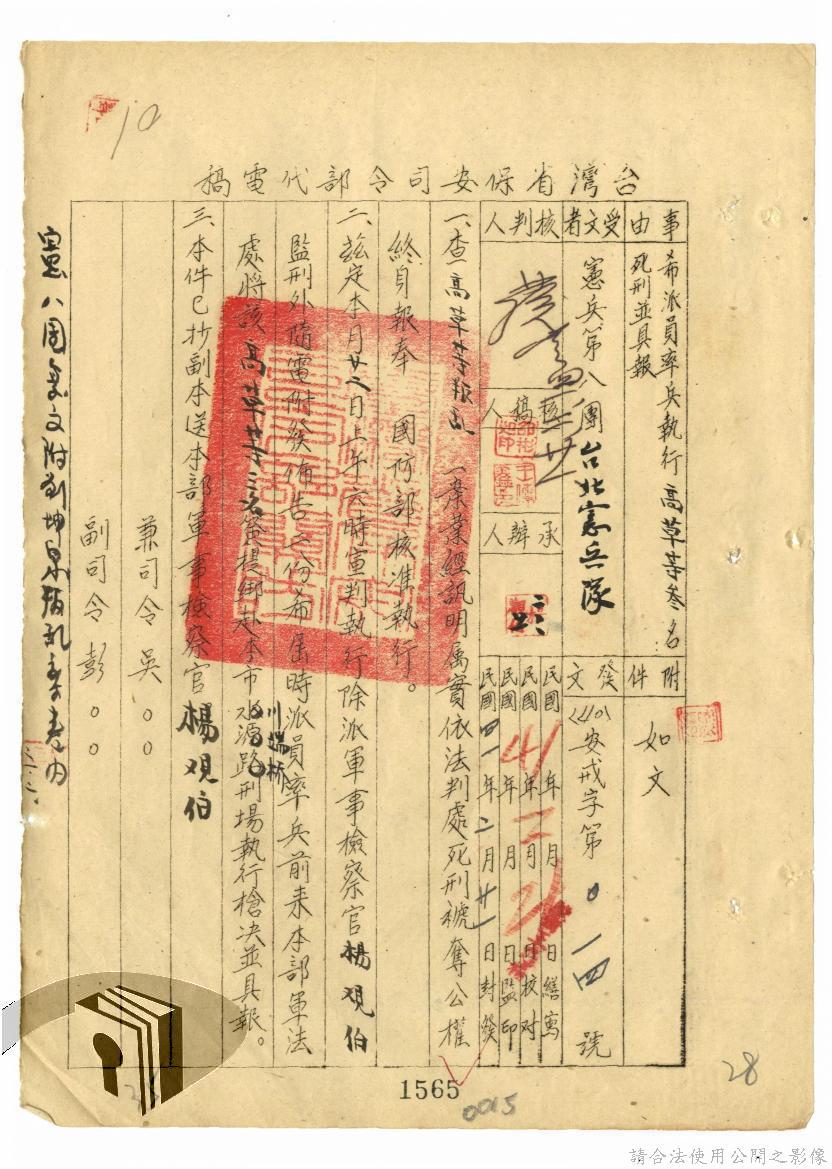 10
台灣省保安司令部代電稿
事由
希派員率兵執行高草等叁名
死刑並具報
附件
如文
受文者
憲兵第八團台北憲兵隊
發文
(40)安戒字第0一四號
核判人
核稿人
承辦人
民國 年 月 日繕寫
民國41年二月21日校对
民國 年 月 日監印
民國四一年二月廿一日封發
一、查高草等叛乱一案業經訊明属實依法判處死刑褫奪公權
終身報奉 國防部核准執行。
二、茲定本月廿二日上午六時宣判執行除派軍事檢察官楊观伯
監刑外隨電附發佈告二份希屆時派員率兵前来本部軍法
處將該高草等三名簽提綁赴本市川端桥刑場執行槍决並具報。
三、本件已抄副本送本部軍事檢察官楊观伯
兼司令吳○○
副司令彭○○
憲八團文附劉坤泉叛乱案卷内
1565
0015
28
請合法使用公開之影像